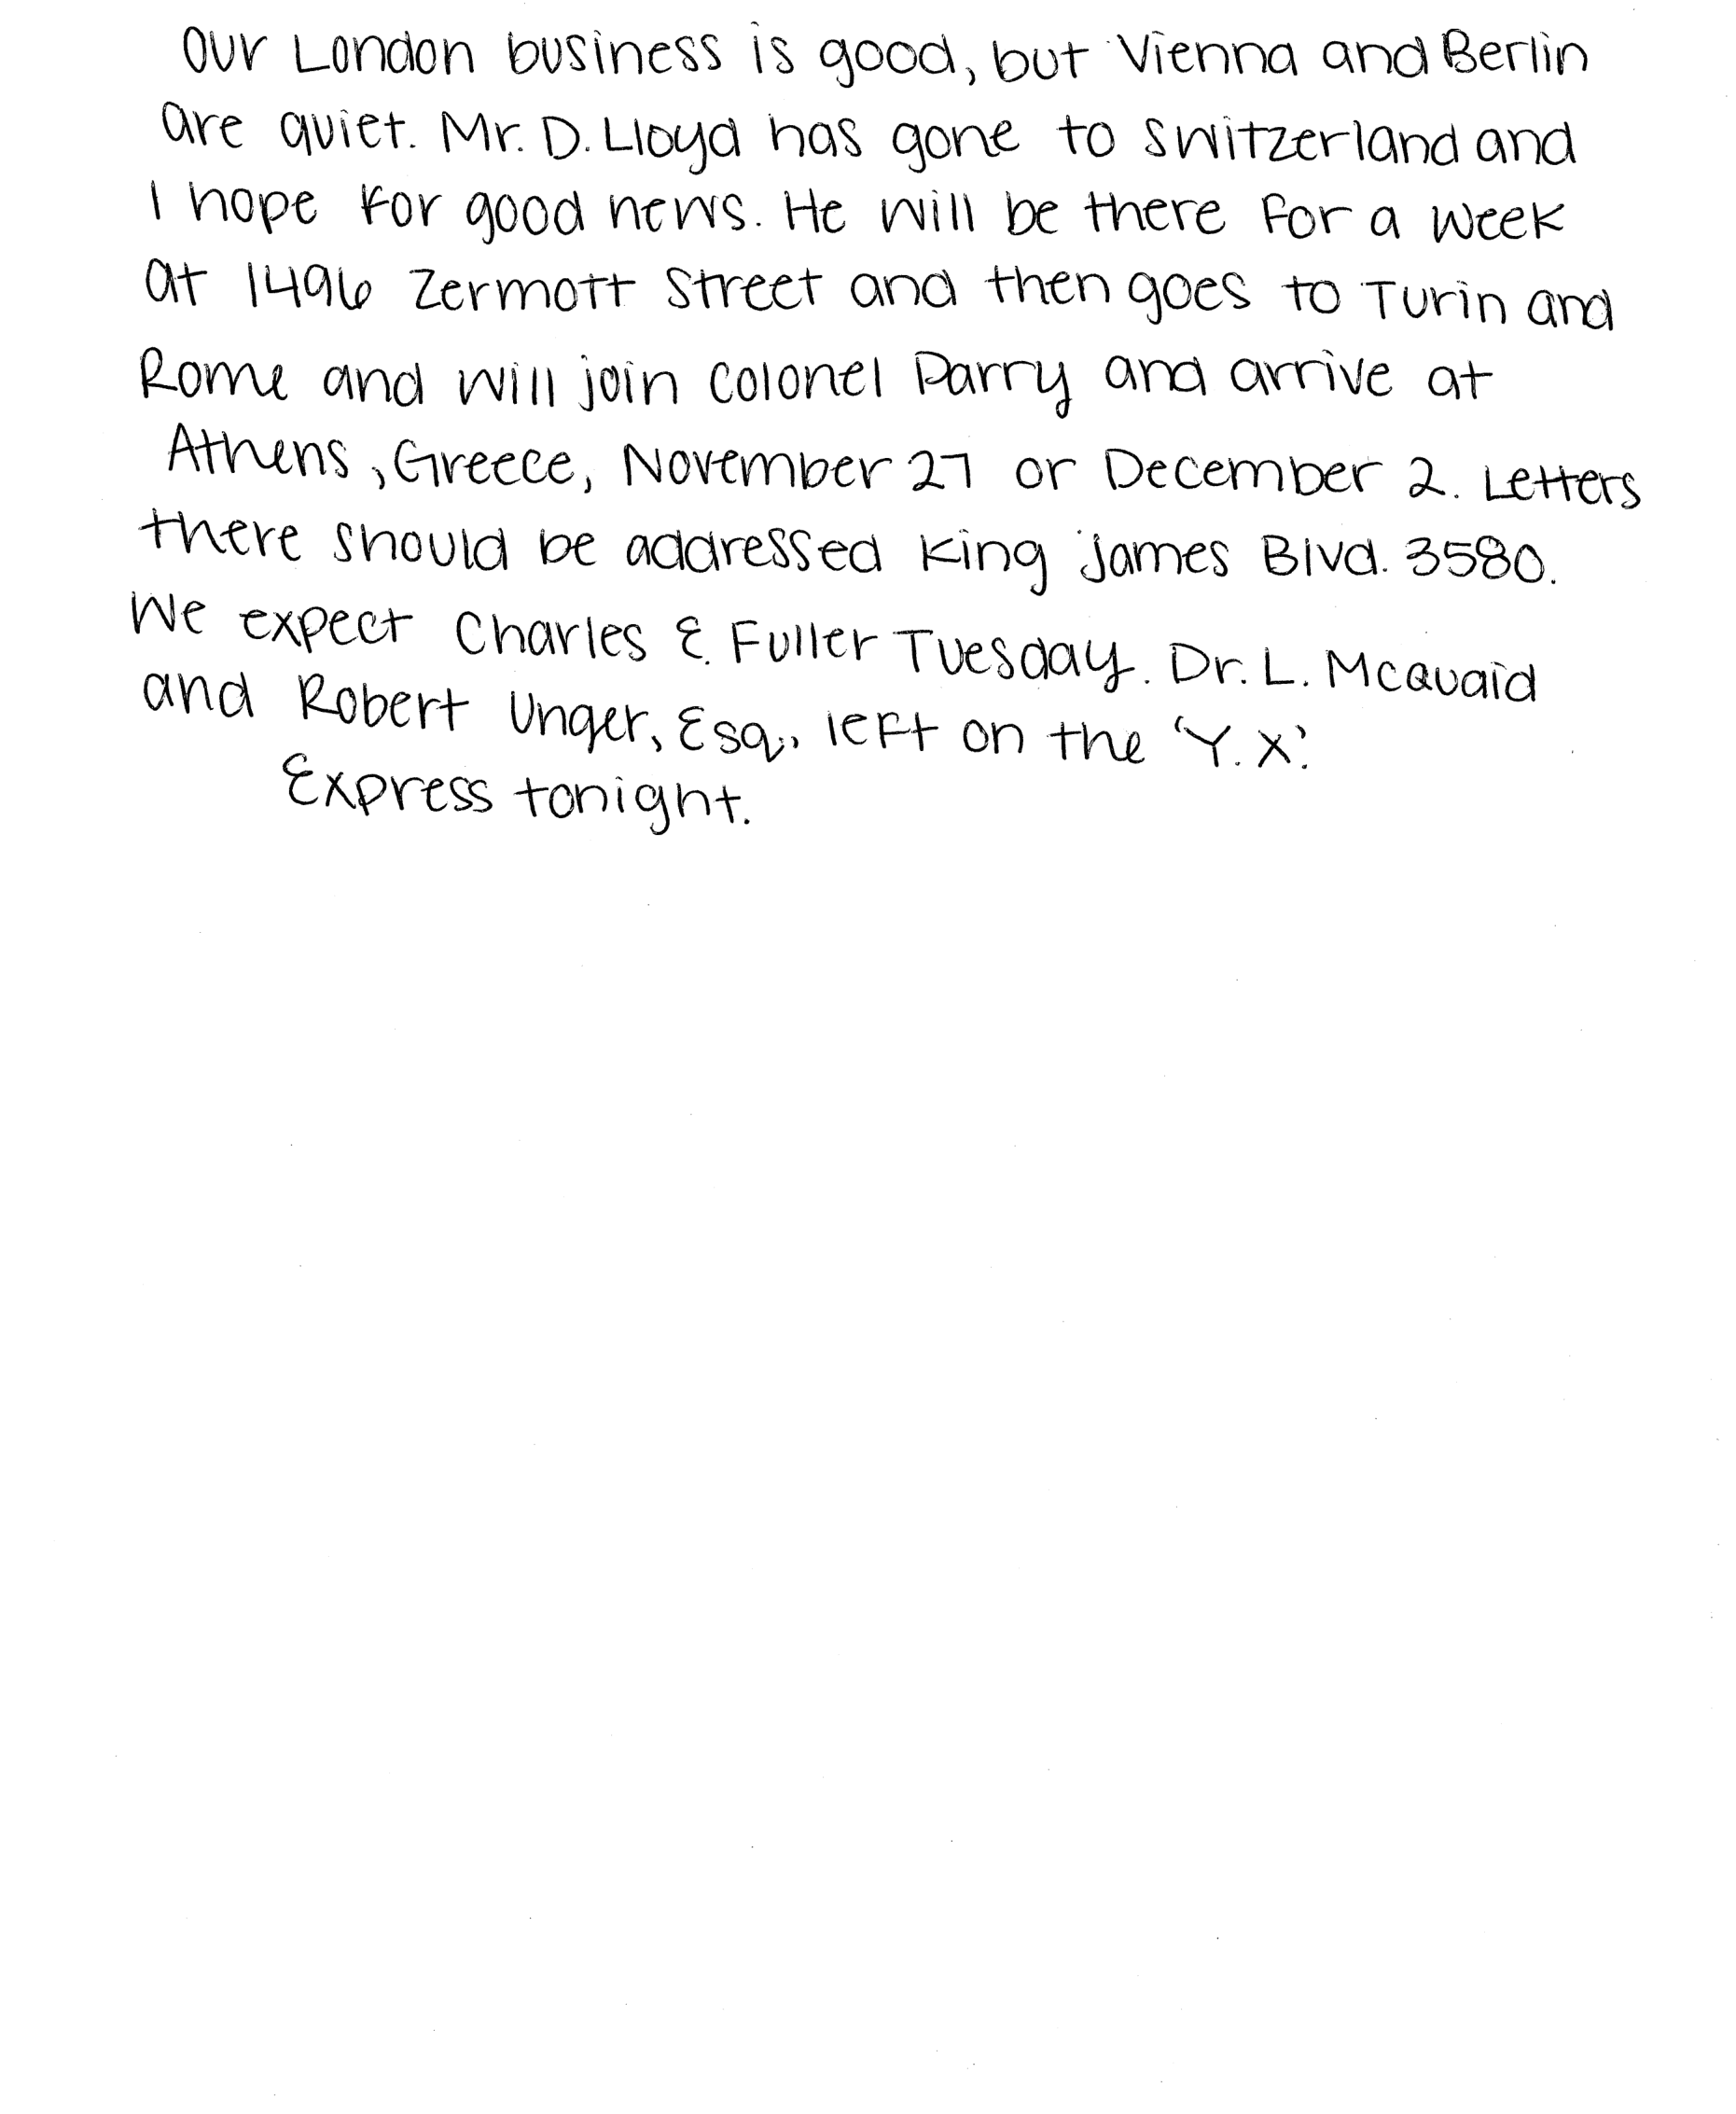 Our London business is good, but Vienna and Berlin
are quiet. Mr. D. Lloyd has gone to Switzerland and
I hope for good news. He will be there for a week
at 1496 Zermott Street and then goes to Turin and
Rome and will join Colonel Parry and arrive at
Athens, Greece, November 27 or December 2. Letters
there should be addressed King James Blvd. 3580.
We expect Charles E. Fuller Tuesday. Dr. L. McQuaid
and Robert Unger, Esq., left on the 'Y.X.'
Express tonight.